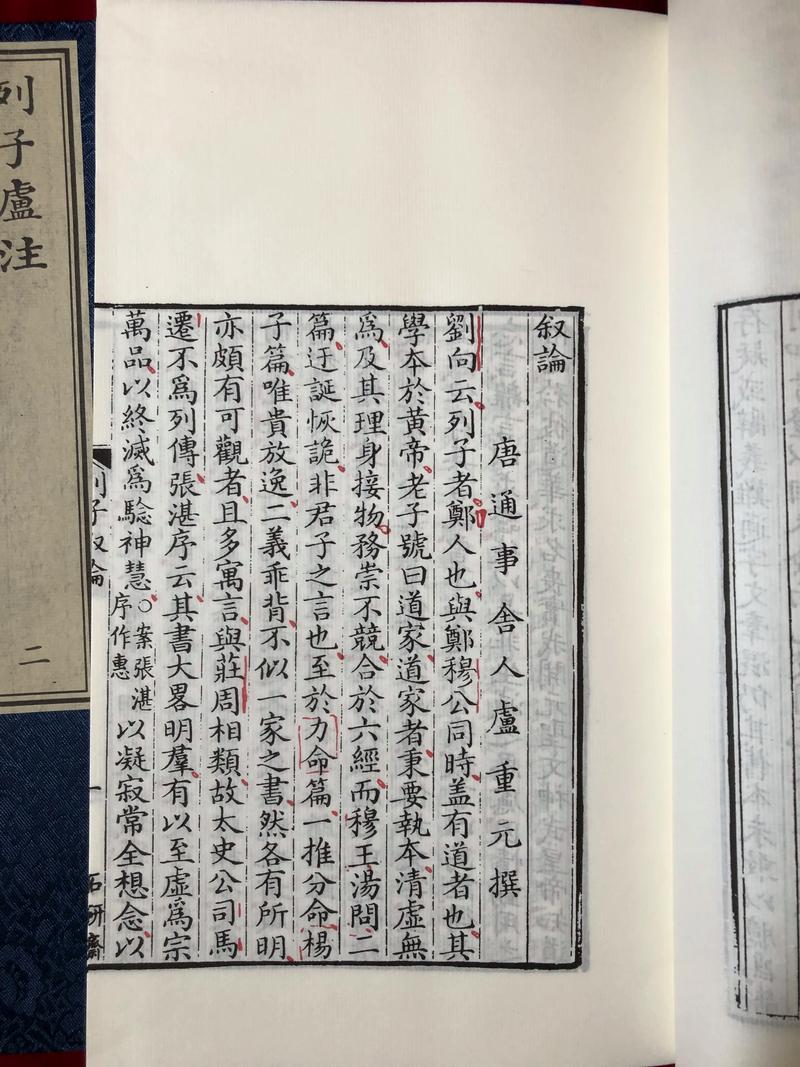 叙論
唐通事舍人盧重元撰
劉向云列子者鄭人也與鄭穆公同時盖有道者也其
學本於黄帝老子號曰道家道家者秉要執本清虛無
爲及其理身接物務崇不競合於六經而穆王湯問二
篇迂誕恢詭非君子之言也至於力命篇一推分命楊
子篇唯貴放逸二義乖背不似一家之書然各有所明
亦頗有可觀者且多寓言與莊周相類故太史公司馬
遷不爲列傳張湛序云其書大畧明羣有以至虛爲宗
萬品以終滅爲驗神慧○案張湛序作惠以凝寂常全想念以
列子叙論
一
石研齋
列子盧注
二